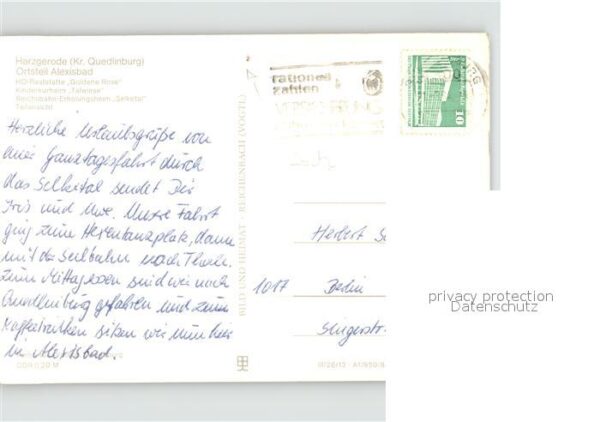 Harzgerode (Kr. Quedlinburg)
Ortsteil Alexisbad
HO-Gaststätte „Goldene Rose“
Kinderkurheim „Talwiese“
Reichsbahn-Erholungsheim „Selketal“
Teilansicht
Herzliche Urlaubsgrüße von
einer Ganztagesfahrt durch
das Selketal sendet Dir
Iris und Uwe. Unsere Fahrt
ging zum Hexentanzplatz, dann
mit der Seilbahn nach Thale.
Zum Mittagessen sind wir nach
Quedlinburg gefahren und zum
Kaffeetrinken sitzen wir nun hier
in Alexisbad.
DDR 0,20 M
BILD UND HEIMAT · REICHENBACH (VOGTL)
rationell
zahlen
10
Herbert
1017 Berlin
Singerstr.
privacy protection
Datenschutz